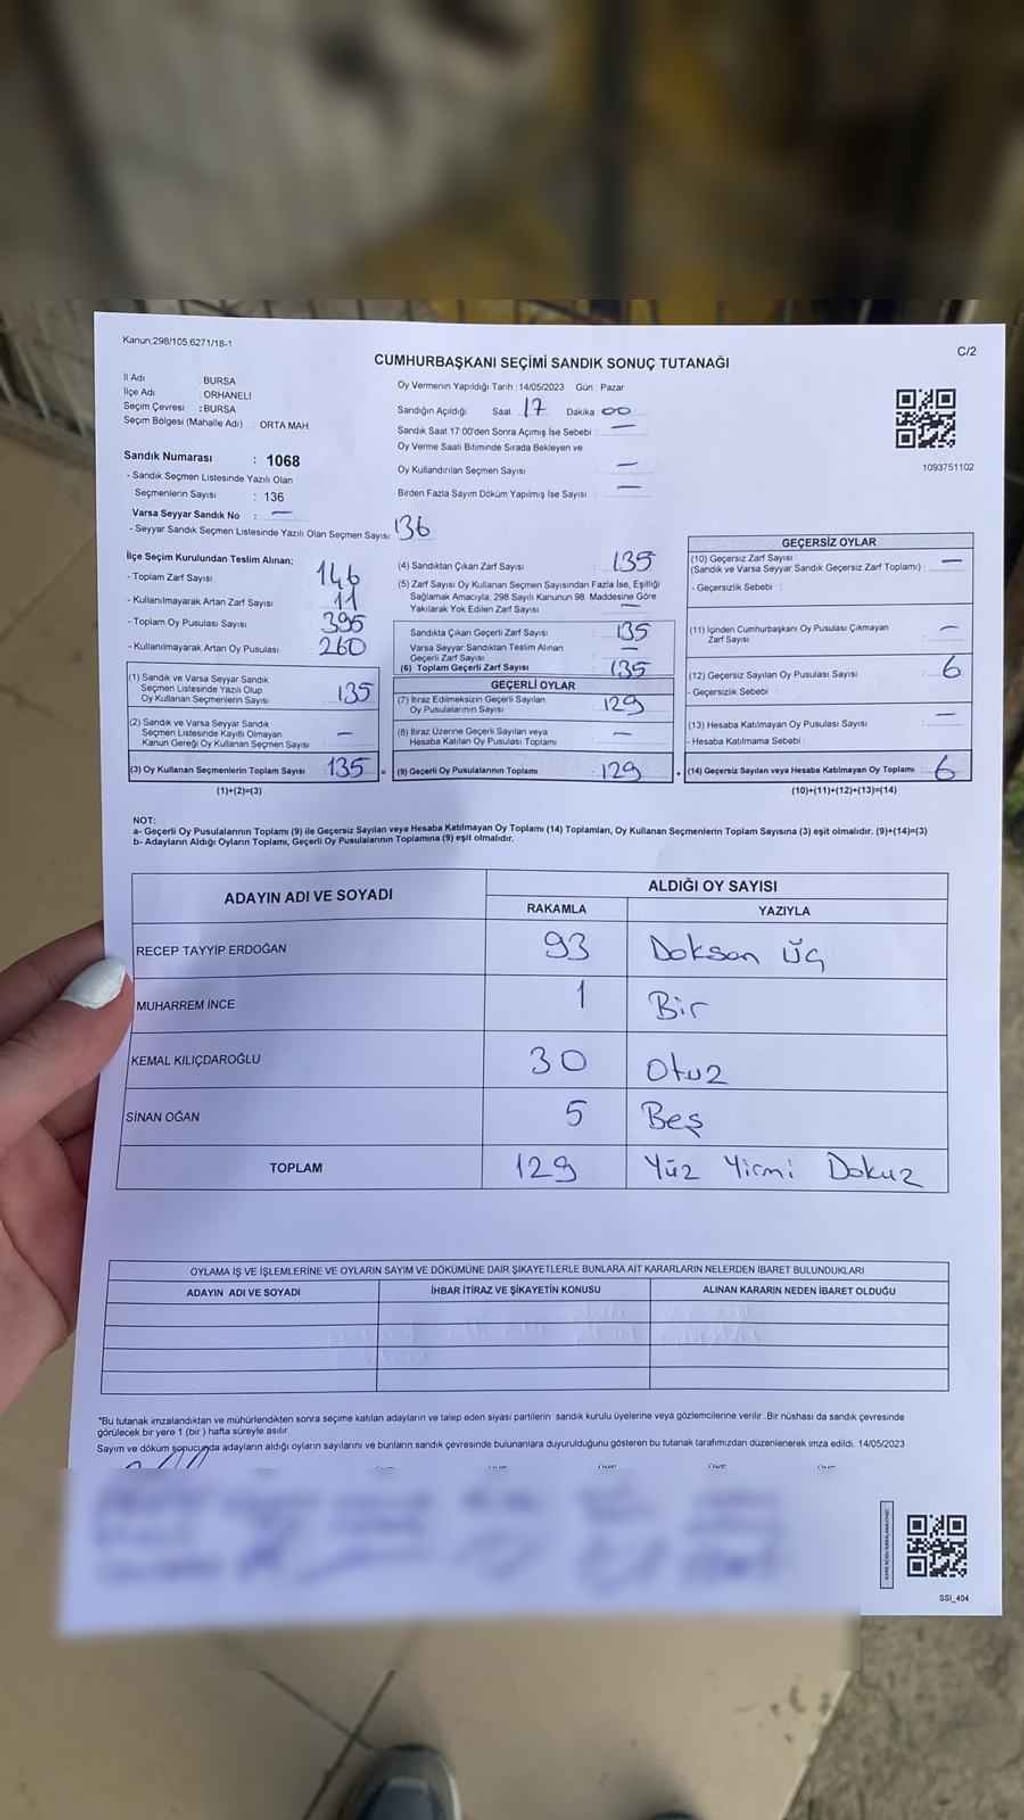 Kanun:298/105,6271/18-1
C/2
CUMHURBAŞKANI SEÇİMİ SANDIK SONUÇ TUTANAĞI
İl Adı BURSA
İlçe Adı : ORHANELİ
Seçim Çevresi : BURSA
Seçim Bölgesi (Mahalle Adı) : ORTA MAH
Sandık Numarası : 1068
- Sandık Seçmen Listesinde Yazılı Olan
Seçmenlerin Sayısı : 136
Varsa Seyyar Sandık No : —
- Seyyar Sandık Seçmen Listesinde Yazılı Olan Seçmen Sayısı 136
Oy Vermenin Yapıldığı Tarih : 14/05/2023 Gün : Pazar
Sandığın Açıldığı Saat 17 Dakika 00
Sandık Saat 17:00'den Sonra Açılmış İse Sebebi : —
Oy Verme Saati Bitiminde Sırada Bekleyen ve
Oy Kullandırılan Seçmen Sayısı —
Birden Fazla Sayım Döküm Yapılmış İse Sayısı : —
1093751102
İlçe Seçim Kurulundan Teslim Alınan:
- Toplam Zarf Sayısı 146
- Kullanılmayarak Artan Zarf Sayısı 11
- Toplam Oy Pusulası Sayısı 395
- Kullanılmayarak Artan Oy Pusulası 260
(1) Sandık ve Varsa Seyyar Sandık
Seçmen Listesinde Yazılı Olup
Oy Kullanan Seçmenlerin Sayısı 135
(2) Sandık ve Varsa Seyyar Sandık
Seçmen Listesinde Kayıtlı Olmayan
Kanun Gereği Oy Kullanan Seçmen Sayısı —
(3) Oy Kullanan Seçmenlerin Toplam Sayısı 135
(1)+(2)=(3)
(4) Sandıktan Çıkan Zarf Sayısı : 135
(5) Zarf Sayısı Oy Kullanan Seçmen Sayısından Fazla İse, Eşitliği
Sağlamak Amacıyla, 298 Sayılı Kanunun 98. Maddesine Göre
Yakılarak Yok Edilen Zarf Sayısı —
Sandıkta Çıkan Geçerli Zarf Sayısı 135
Varsa Seyyar Sandıktan Teslim Alınan
Geçerli Zarf Sayısı —
(6) Toplam Geçerli Zarf Sayısı 135
GEÇERLİ OYLAR
(7) İtiraz Edilmeksizin Geçerli Sayılan
Oy Pusulalarının Sayısı 129
(8) İtiraz Üzerine Geçerli Sayılan veya
Hesaba Katılan Oy Pusulası Toplamı —
(9) Geçerli Oy Pusulalarının Toplamı 129
GEÇERSİZ OYLAR
(10) Geçersiz Zarf Sayısı
(Sandık ve Varsa Seyyar Sandık Geçersiz Zarf Toplamı) : —
- Geçersizlik Sebebi :
(11) İçinden Cumhurbaşkanı Oy Pusulası Çıkmayan
Zarf Sayısı —
(12) Geçersiz Sayılan Oy Pusulası Sayısı 6
- Geçersizlik Sebebi
(13) Hesaba Katılmayan Oy Pusulası Sayısı —
- Hesaba Katılmama Sebebi
(14) Geçersiz Sayılan veya Hesaba Katılmayan Oy Toplamı 6
(10)+(11)+(12)+(13)=(14)
NOT:
a- Geçerli Oy Pusulalarının Toplamı (9) ile Geçersiz Sayılan veya Hesaba Katılmayan Oy Toplamı (14) Toplamları, Oy Kullanan Seçmenlerin Toplam Sayısına (3) eşit olmalıdır. (9)+(14)=(3)
b- Adayların Aldığı Oyların Toplamı, Geçerli Oy Pusulalarının Toplamına (9) eşit olmalıdır.
ADAYIN ADI VE SOYADI ALDIĞI OY SAYISI
RAKAMLA YAZIYLA
RECEP TAYYİP ERDOĞAN 93 Doksan Üç
MUHARREM İNCE 1 Bir
KEMAL KILIÇDAROĞLU 30 Otuz
SİNAN OĞAN 5 Beş
TOPLAM 129 Yüz Yirmi Dokuz
OYLAMA İŞ VE İŞLEMLERİNE VE OYLARIN SAYIM VE DÖKÜMÜNE DAİR ŞİKAYETLERLE BUNLARA AİT KARARLARIN NELERDEN İBARET BULUNDUKLARI
ADAYIN ADI VE SOYADI İHBAR İTİRAZ VE ŞİKAYETİN KONUSU ALINAN KARARIN NEDEN İBARET OLDUĞU
*Bu tutanak imzalandıktan ve mühürlendikten sonra seçime katılan adayların ve talep eden siyasi partilerin sandık kurulu üyelerine veya gözlemcilerine verilir. Bir nüshası da sandık çevresinde
görülecek bir yere 1 (bir) hafta süreyle asılır.
Sayım ve döküm sonucunda adayların aldığı oyların sayılarını ve bunların sandık çevresinde bulunanlara duyurulduğunu gösteren bu tutanak tarafımızdan düzenlenerek imza edildi. 14/05/2023
SSI_404